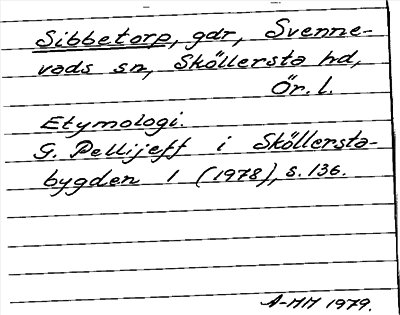 Sibbetorp, gdr, Svenne-
vads sn, Sköllersta hd,
Ör. l.
Etymologi.
G. Pellijeff i Sköllersta-
bygden 1 (1978), s. 136.
A-MM 1979.